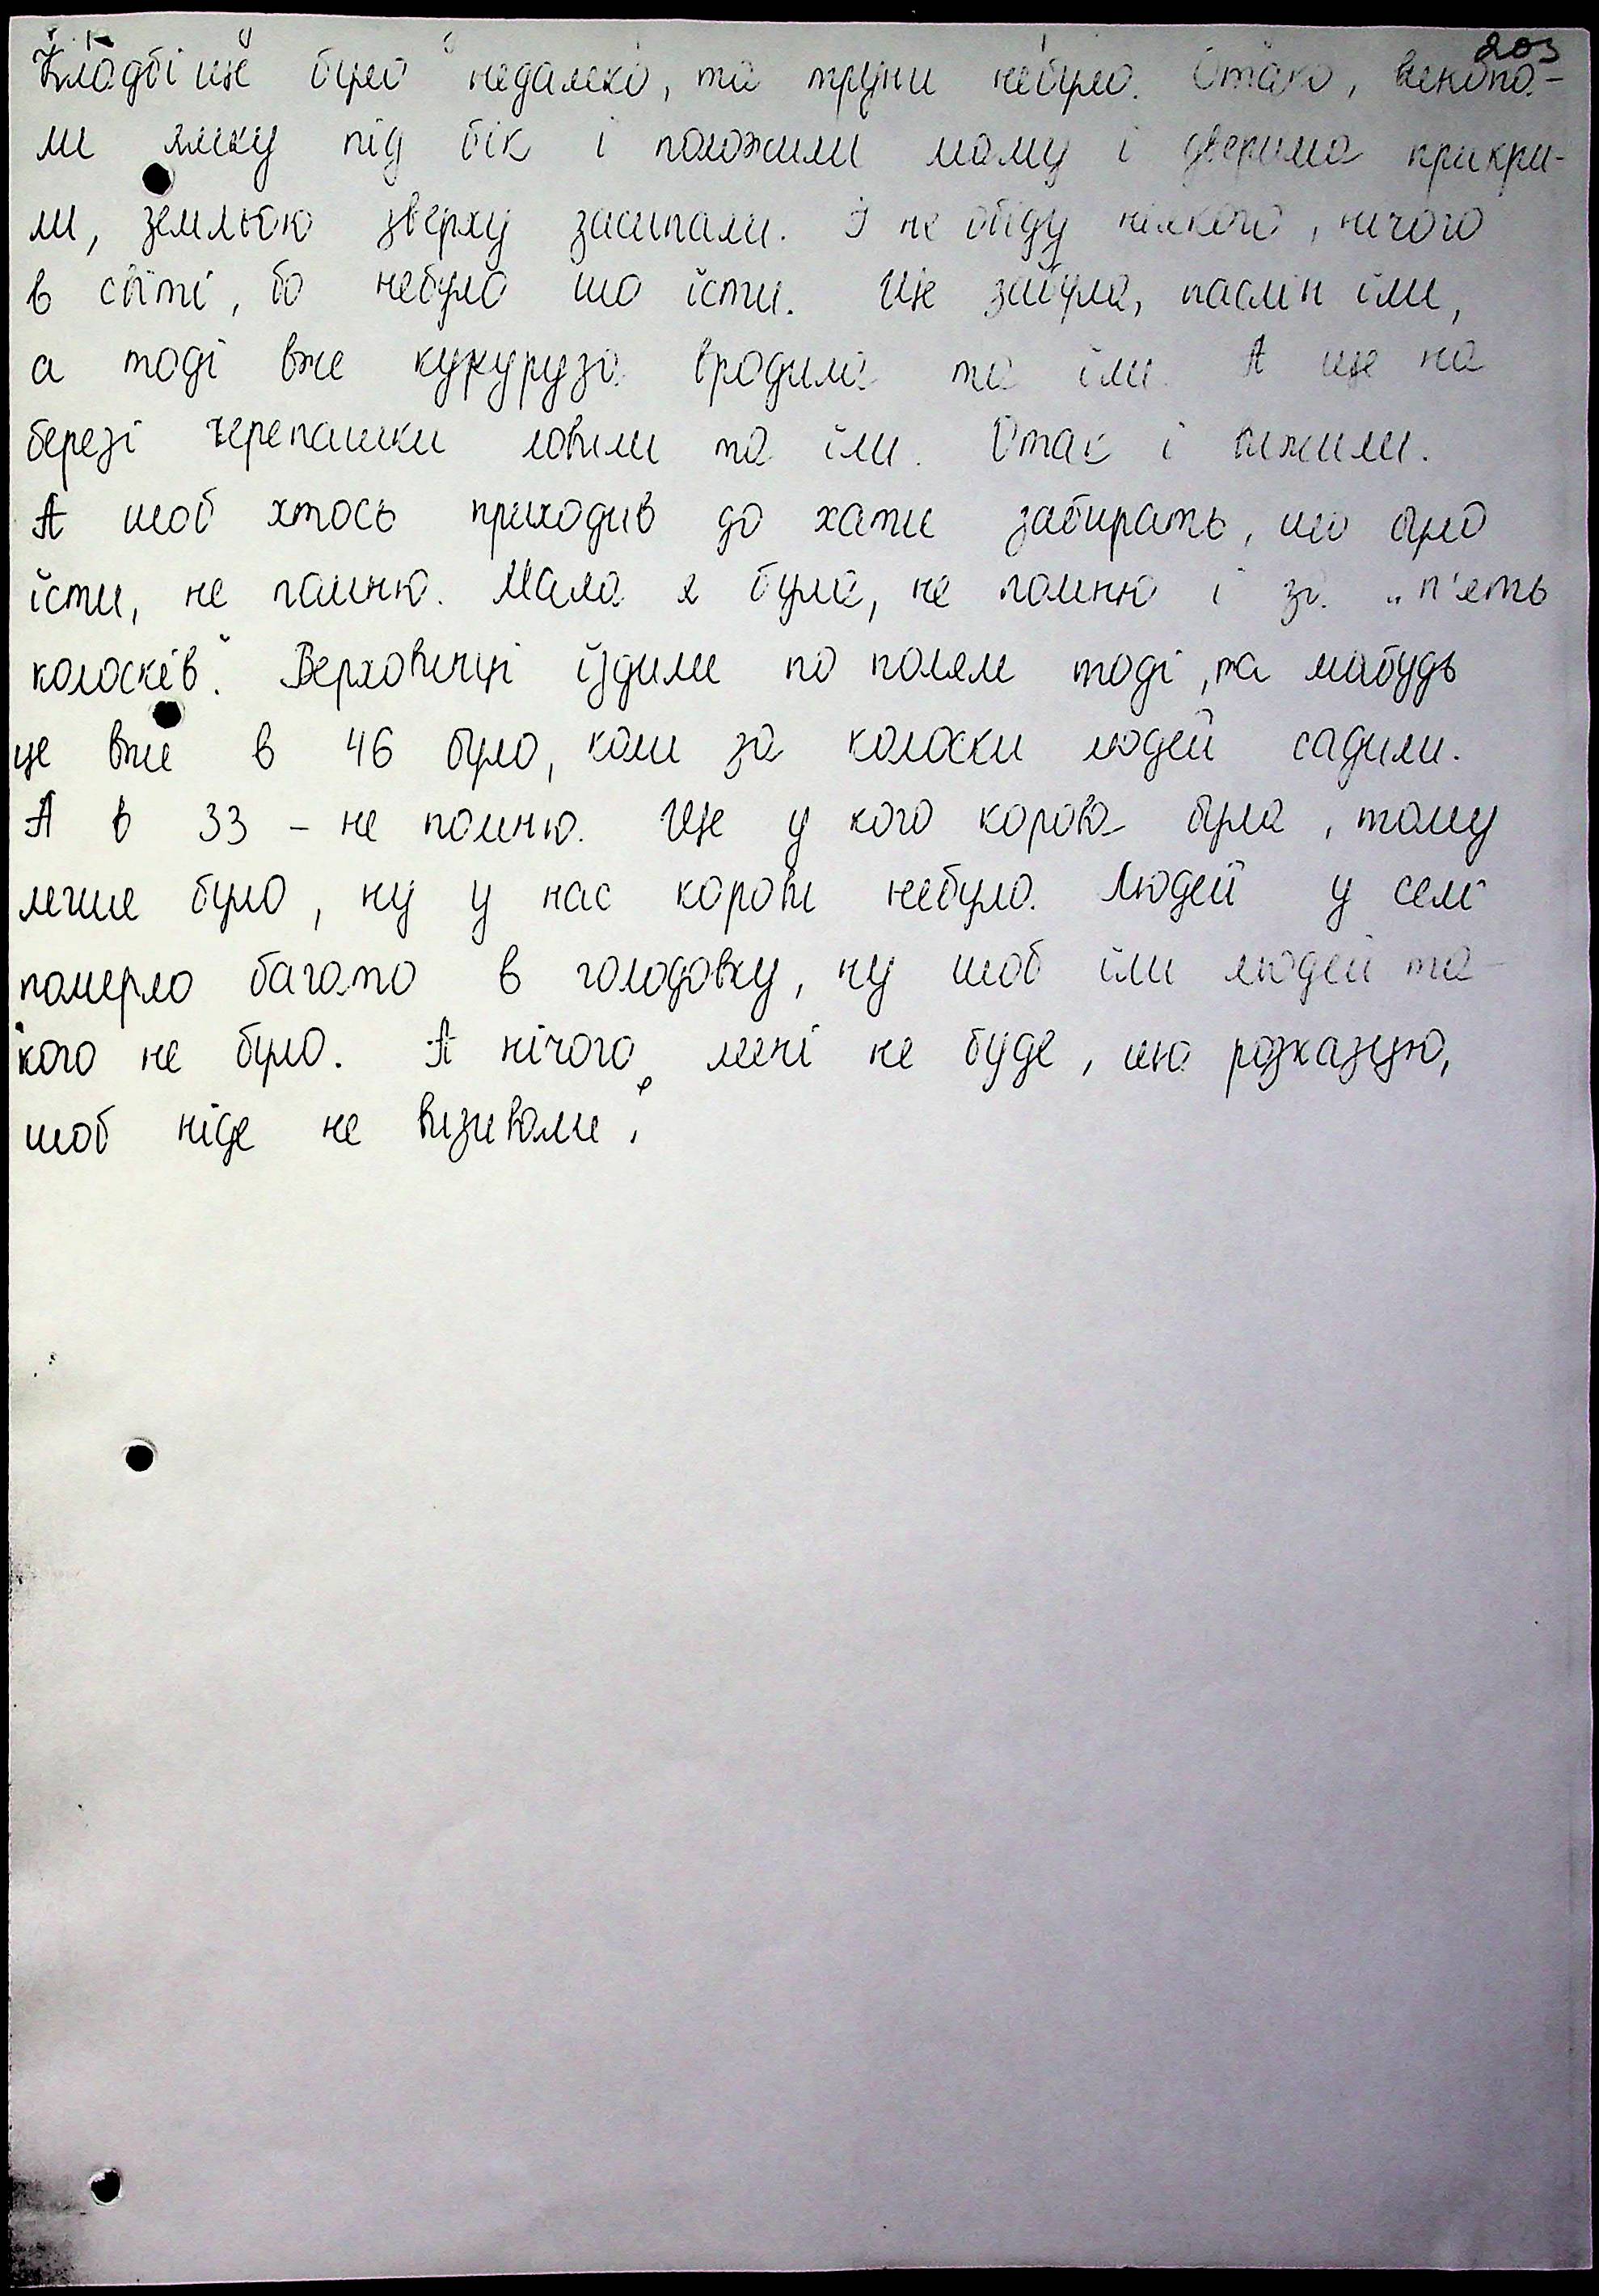 203
Кладбіще було недалеко, та труни небуло. Отако, викопа-
ли ямку під бік і положили маму і дверима прикри-
ли, земльою зверху засипали. І не обіду ніякого, нічого
в світі, бо небуло шо їсти. Ще забула, паслін їли,
а тоді вже кукуруза вродила та їли. А ще на
березі черепашки ловили та їли. Отак і вижили.
А шоб хтось приходив до хати забирать, шо було
їсти, не помню. Мала я була, не помню і за „п'ять
колосків". Верховинці їздили по полям тоді, та мабудь
це вже в 46 було, коли за колоски людей садили.
А в 33 – не помню. Ще у кого корова була, тому
легше було, ну у нас корови небуло. Людей у селі
померло багато в голодовку, ну шоб їли людей та-
кого не було. А нічого мені не буде, шо розказую,
шоб ніде не визивали.